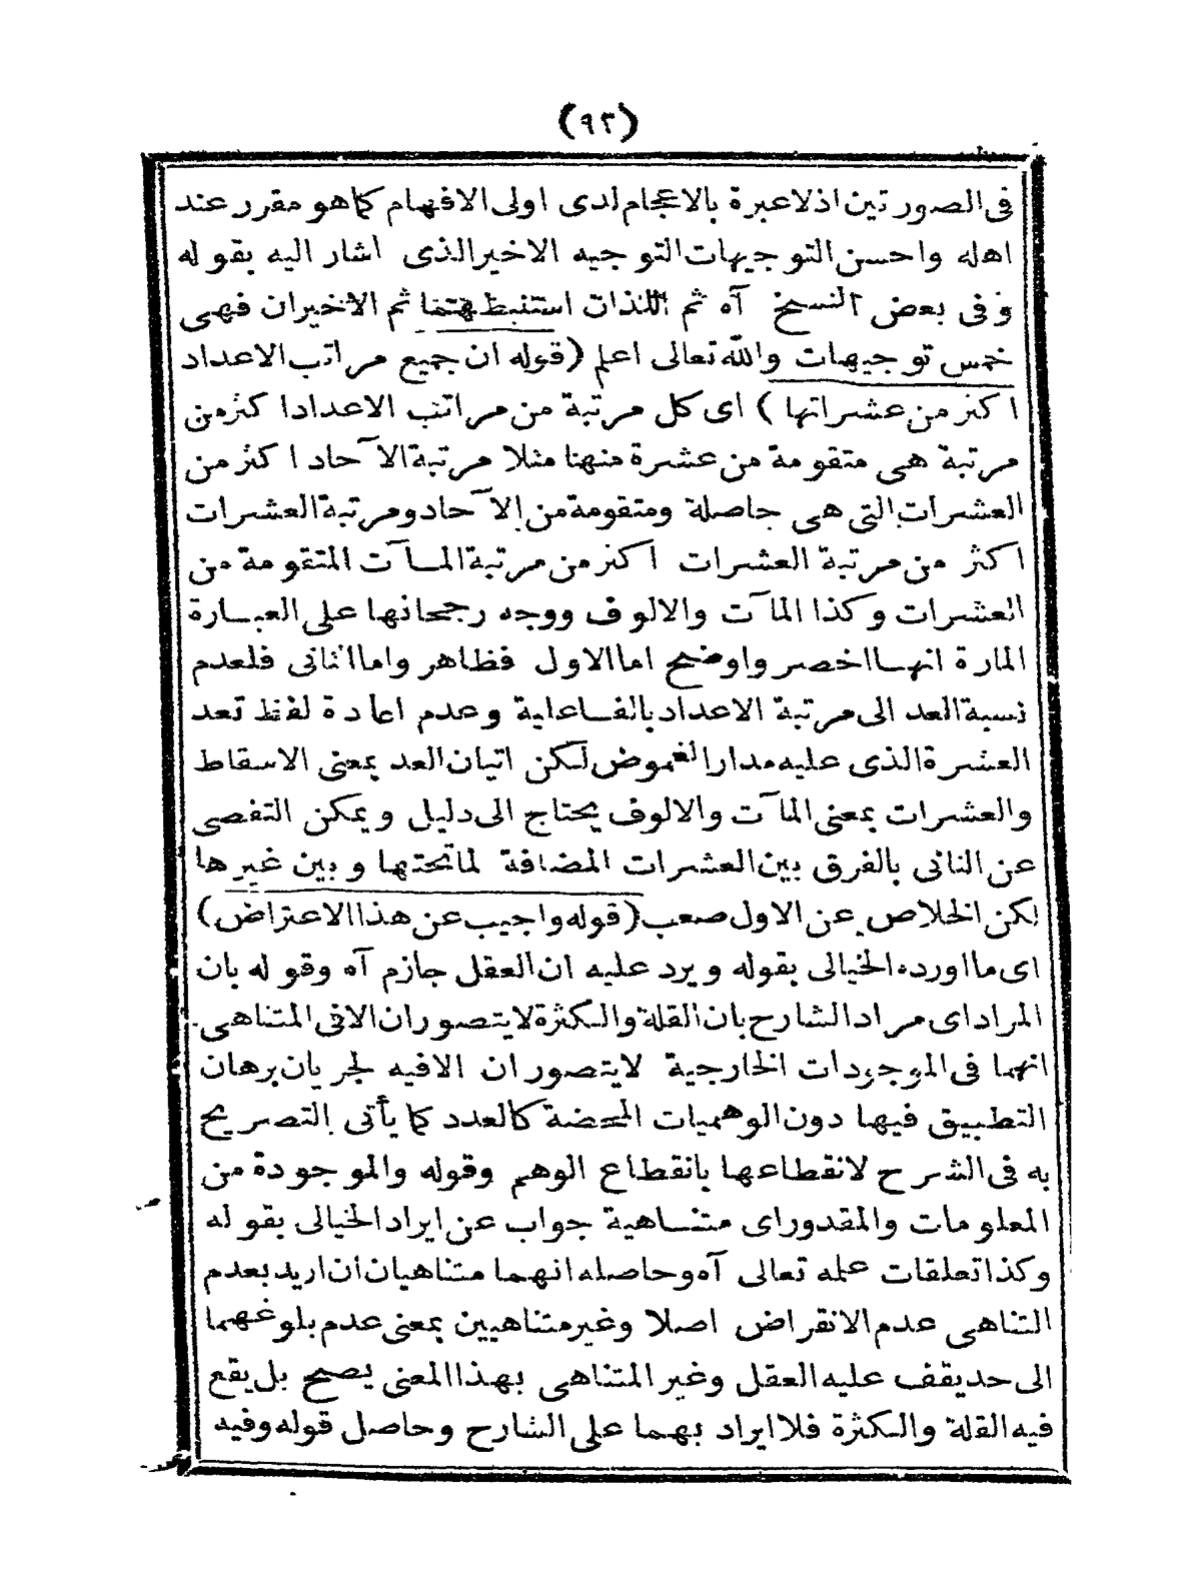 (٩٢)
فى الصورتين اذلا عبرة بالاعجام لدى اولى الافهام كما هو مقرر عند
اهله واحسن التوجيهات التوجيه الاخير الذى اشار اليه بقوله
وفى بعض النسخ آه ثم اللذان استنبطهما ثم الاخيران فهى
خمس توجيهات والله تعالى اعلم (قوله ان جميع مراتب الاعداد
اكثر من عشراتها) اى كل مرتبة من مراتب الاعداد اكثر من
مرتبة هى متقومة من عشرة منها مثلا مرتبة الآحاد اكثر من
العشرات التى هى حاصلة ومتقومة من الآحاد ومرتبة العشرات
اكثر من مرتبة العشرات اكثر من مرتبة المآت المتقومة من
العشرات وكذا المآت والالوف ووجه رجحانها على العبارة
المارة انها اخصر واوضح اما الاول فظاهر واما الثانى فلعدم
نسبة العد الى مرتبة الاعداد بالفاعلية وعدم اعادة لفظ تعد
العشرة الذى عليه مدار الغموض لكن اتيان العد بمعنى الاسقاط
والعشرات بمعنى المآت والالوف يحتاج الى دليل ويمكن التفصى
عن الثانى بالفرق بين العشرات المضافة لما تحتها وبين غيرها
لكن الخلاص عن الاول صعب (قوله واجيب عن هذا الاعتراض)
اى ما اورده الخيالى بقوله ويرد عليه ان العقل جازم آه وقوله بان
المراد اى مراد الشارح بان القلة والكثرة لايتصوران الا فى المتناهى
انهما فى الموجودات الخارجية لايتصوران الا فيه لجريان برهان
التطبيق فيها دون الوهميات المحضة كالعدد كما يأتى التصريح
به فى الشرح لانقطاعها بانقطاع الوهم وقوله والموجودة من
المعلومات والمقدور اى متناهية جواب عن ايراد الخيالى بقوله
وكذا تعلقات علمه تعالى آه وحاصله انهما متناهيان ان اريد بعدم
التناهى عدم الانقراض اصلا وغير متناهيين بمعنى عدم بلوغهما
الى حد يقف عليه العقل وغير المتناهى بهذا المعنى يصح بل يقع
فيه القلة والكثرة فلا ايراد بهما على الشارح وحاصل قوله وفيه